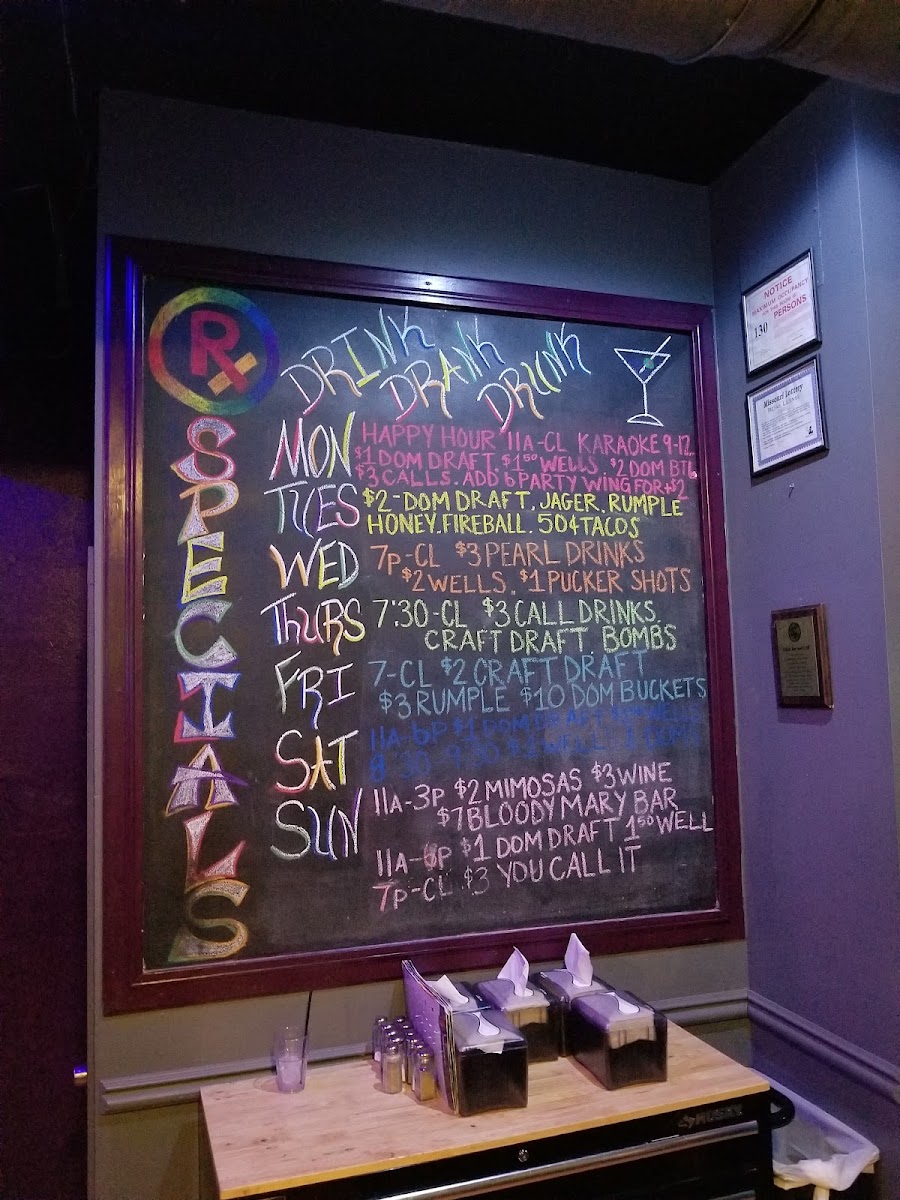 Rx
SPECIALS
DRINK
DRANK
DRUNK
MON HAPPY HOUR 11A-CL KARAOKE 9-12
$1 DOM DRAFT. $1⁵⁰ WELLS. $2 DOM BTL
$3 CALLS. ADD 6 PARTY WING FOR +$2
TUES $2-DOM DRAFT. JAGER. RUMPLE
HONEY. FIREBALL. 50¢ TACOS
WED 7P-CL $3 PEARL DRINKS
$2 WELLS. $1 PUCKER SHOTS
THURS 7:30-CL $3 CALL DRINKS.
CRAFT DRAFT. BOMBS
FRI 7-CL $2 CRAFT DRAFT
$3 RUMPLE $10 DOM BUCKETS
SAT 11A-6P $1 DOM DRAFT
8:30-9:30 $2 WELL
SUN 11A-3P $2 MIMOSAS $3 WINE
$7 BLOODY MARY BAR
11A-6P $1 DOM DRAFT 1⁵⁰ WELL
7P-CL $3 YOU CALL IT
NOTICE
MAXIMUM OCCUPANCY
130 PERSONS
Missouri Lottery
HUSKY